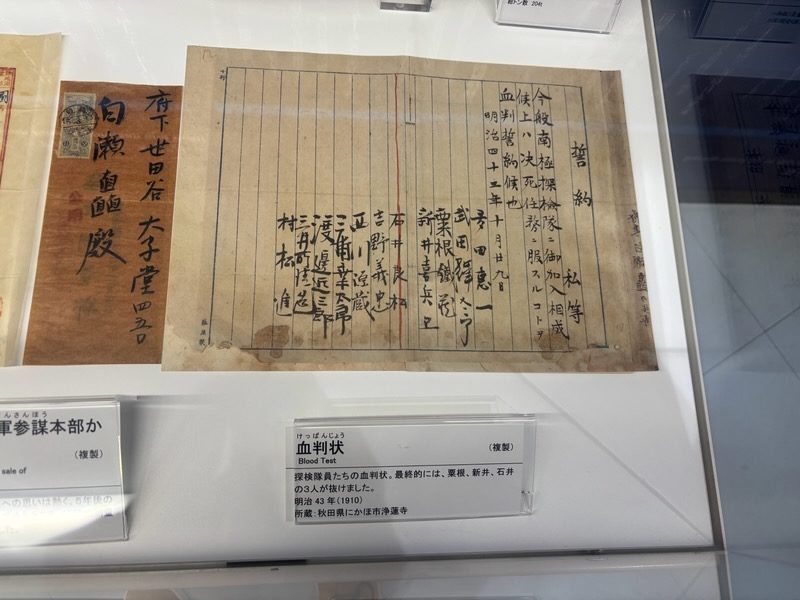 総トン数 204t
誓約
私等
今般南極探検隊ニ御加入相成
候上ハ決死任務ニ服スルコトヲ
血判誓約候也
明治四十三年十月廿九日
多田恵一
武田輝太郎
粟根鐵蔵
新井喜兵エ
石井良松
吉野義忠
西川源蔵
三浦幸太郎
渡邊近三郎
三井所清造
村松進
府下世田谷太子堂四五〇
白瀬矗殿
んさんぼう
軍参謀本部か
(複製)
sale of
への思いは熱く、6年後の
した。
けっぱんじょう
血判状
(複製)
Blood Test
探検隊員たちの血判状。最終的には、粟根、新井、石井
の3人が抜けました。
明治 43 年(1910)
所蔵:秋田県にかほ市浄蓮寺